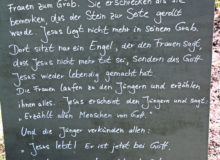 Frauen zum Grab. Sie erschrecken als sie
bemerken, das der Stein zur Seite gerollt
wurde. Jesus liegt nicht mehr in seinem Grab.
Dort sitzt nur ein Engel, der den Frauen sagt,
dass Jesus nicht mehr tot sei, sondern das Gott
Jesus wieder lebendig gemacht hat.
Die Frauen laufen zu den Jüngern und erzählen
ihnen alles. Jesus erscheint den Jüngern und sagt:
"Erzählt allen Menschen von Gott."
Und die Jünger verkünden allen:
"Jesus lebt! Er ist jetzt bei Gott."